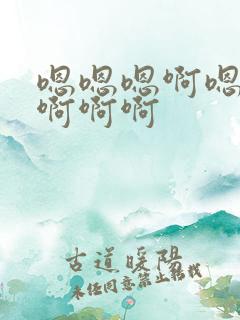 嗯嗯嗯啊嗯
啊啊啊
古道暖阳
未经同意禁止转载